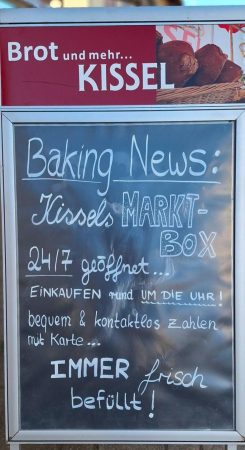 Brot und mehr...
KISSEL
Baking News:
Kissels MARKT-
BOX
24/7 geöffnet...
EINKAUFEN rund UM DIE UHR!
bequem & kontaktlos zahlen
mit Karte...
IMMER frisch
befüllt!